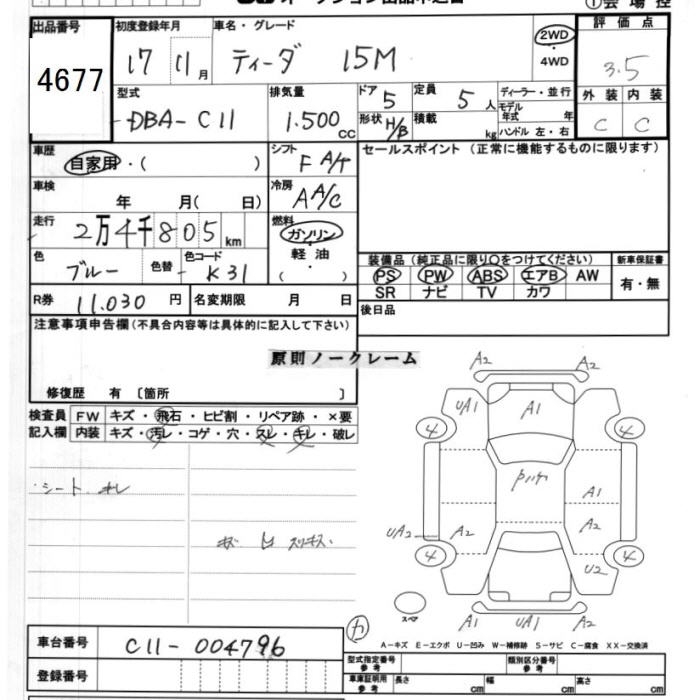 出品番号 4677
初度登録年月 17 11月
車名・グレード ティーダ 15M
2WD・4WD
評価点 3.5
外装 内装
C C
型式 DBA-C11
排気量 1.500cc
ドア 5
形状 H/B
定員 5人
積載 kg
ディーラー・並行
モデル年式 年
ハンドル 左・右
車歴 自家用・( )
シフト F A/T
セールスポイント (正常に機能するものに限ります)
車検 年 月( 日)
冷房 A A/C
走行 2万4千805km
燃料 ガソリン・軽油・( )
色 ブルー 色替
色コード K31
装備品 (純正品に限り○をつけてください)
新車保証書
PS PW ABS エアB AW
SR ナビ TV カワ
有・無
R券 11.030円
名変期限 月 日
後日品
注意事項申告欄(不具合内容等は具体的に記入して下さい)
原則ノークレーム
修復歴 有 〔箇所 〕
検査員記入欄
FW キズ・飛石・ヒビ割・リペア跡・×要
内装 キズ・汚レ・コゲ・穴・スレ・キレ・破レ
・シート キレ
A2 A2
UA1 A1
4 4
A1
UA2 A2 A2
4 4
U2
スペア
A1 UA1 A2
A-キズ E-エクボ U-凹み W-補修跡 S-サビ C-腐食 XX-交換済
車台番号 C11-004796
登録番号
型式指定番号参考
類別区分番号参考
車庫証明用参考 長さ cm 幅 cm 高さ cm